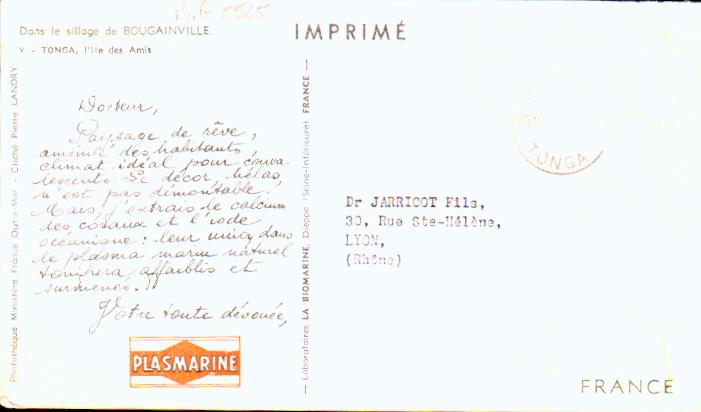 Dans le sillage de BOUGAINVILLE.
V - TONGA, l'Ile des Amis
IMPRIMÉ
Docteur,
Paysage de rêve,
aménité des habitants,
climat idéal pour conva-
lescents. Le décor, hélas,
n'est pas démontable.
Mais j'extrais le calcium
des coraux et l'iode
océanique : leur union dans
le plasma marin naturel
tonifiera affaiblis et
surmenés.
Votre toute dévouée,
PLASMARINE
Photothèque Ministère France Outre-Mer - Cliché Pierre LANDRY
Laboratoires LA BIOMARINE, Dieppe (Seine-Inférieure) FRANCE
TONGA
Dr JARRICOT Fils,
30, Rue Ste-Hélène,
LYON,
(Rhône)
FRANCE